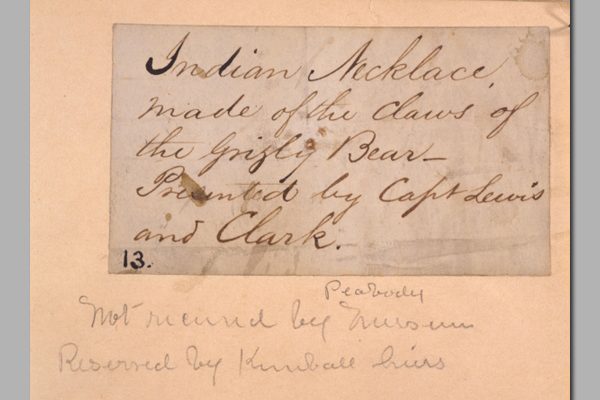 Indian Necklace,
made of the Claws of
the Grizly Bear—
Presented by Capt Lewis
and Clark.
13.
Peabody
Not received by Museum
Reserved by Kimball heirs